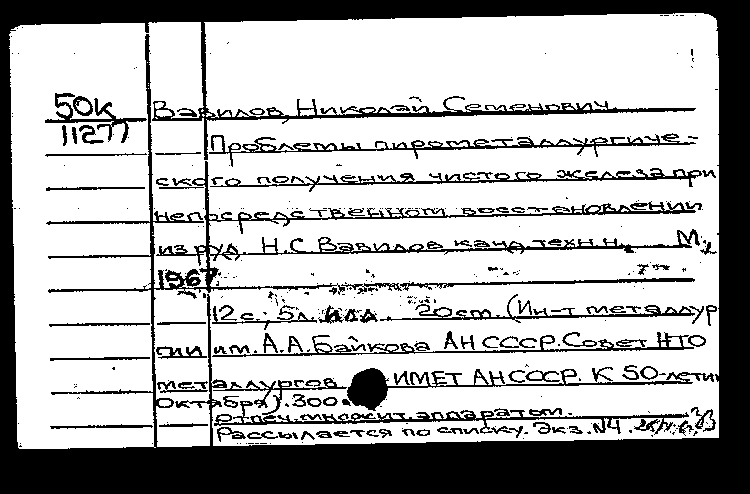 50К Вавилов, Николай Семенович.
11277
Проблемы пирометаллургиче-
ского получения чистого железа при
непосредственном восстановлении
из руд. Н.С. Вавилов, канд. техн. н. М.,
1967
12с.; 5л. илл. 20см. (Ин-т металлур
гии им. А.А. Байкова АН СССР. Совет НТО
металлургов ИМЕТ АН СССР. К 50-летию
Октября). 300
отпеч. множит. аппаратом.
Рассылается по списку. Экз. №4.